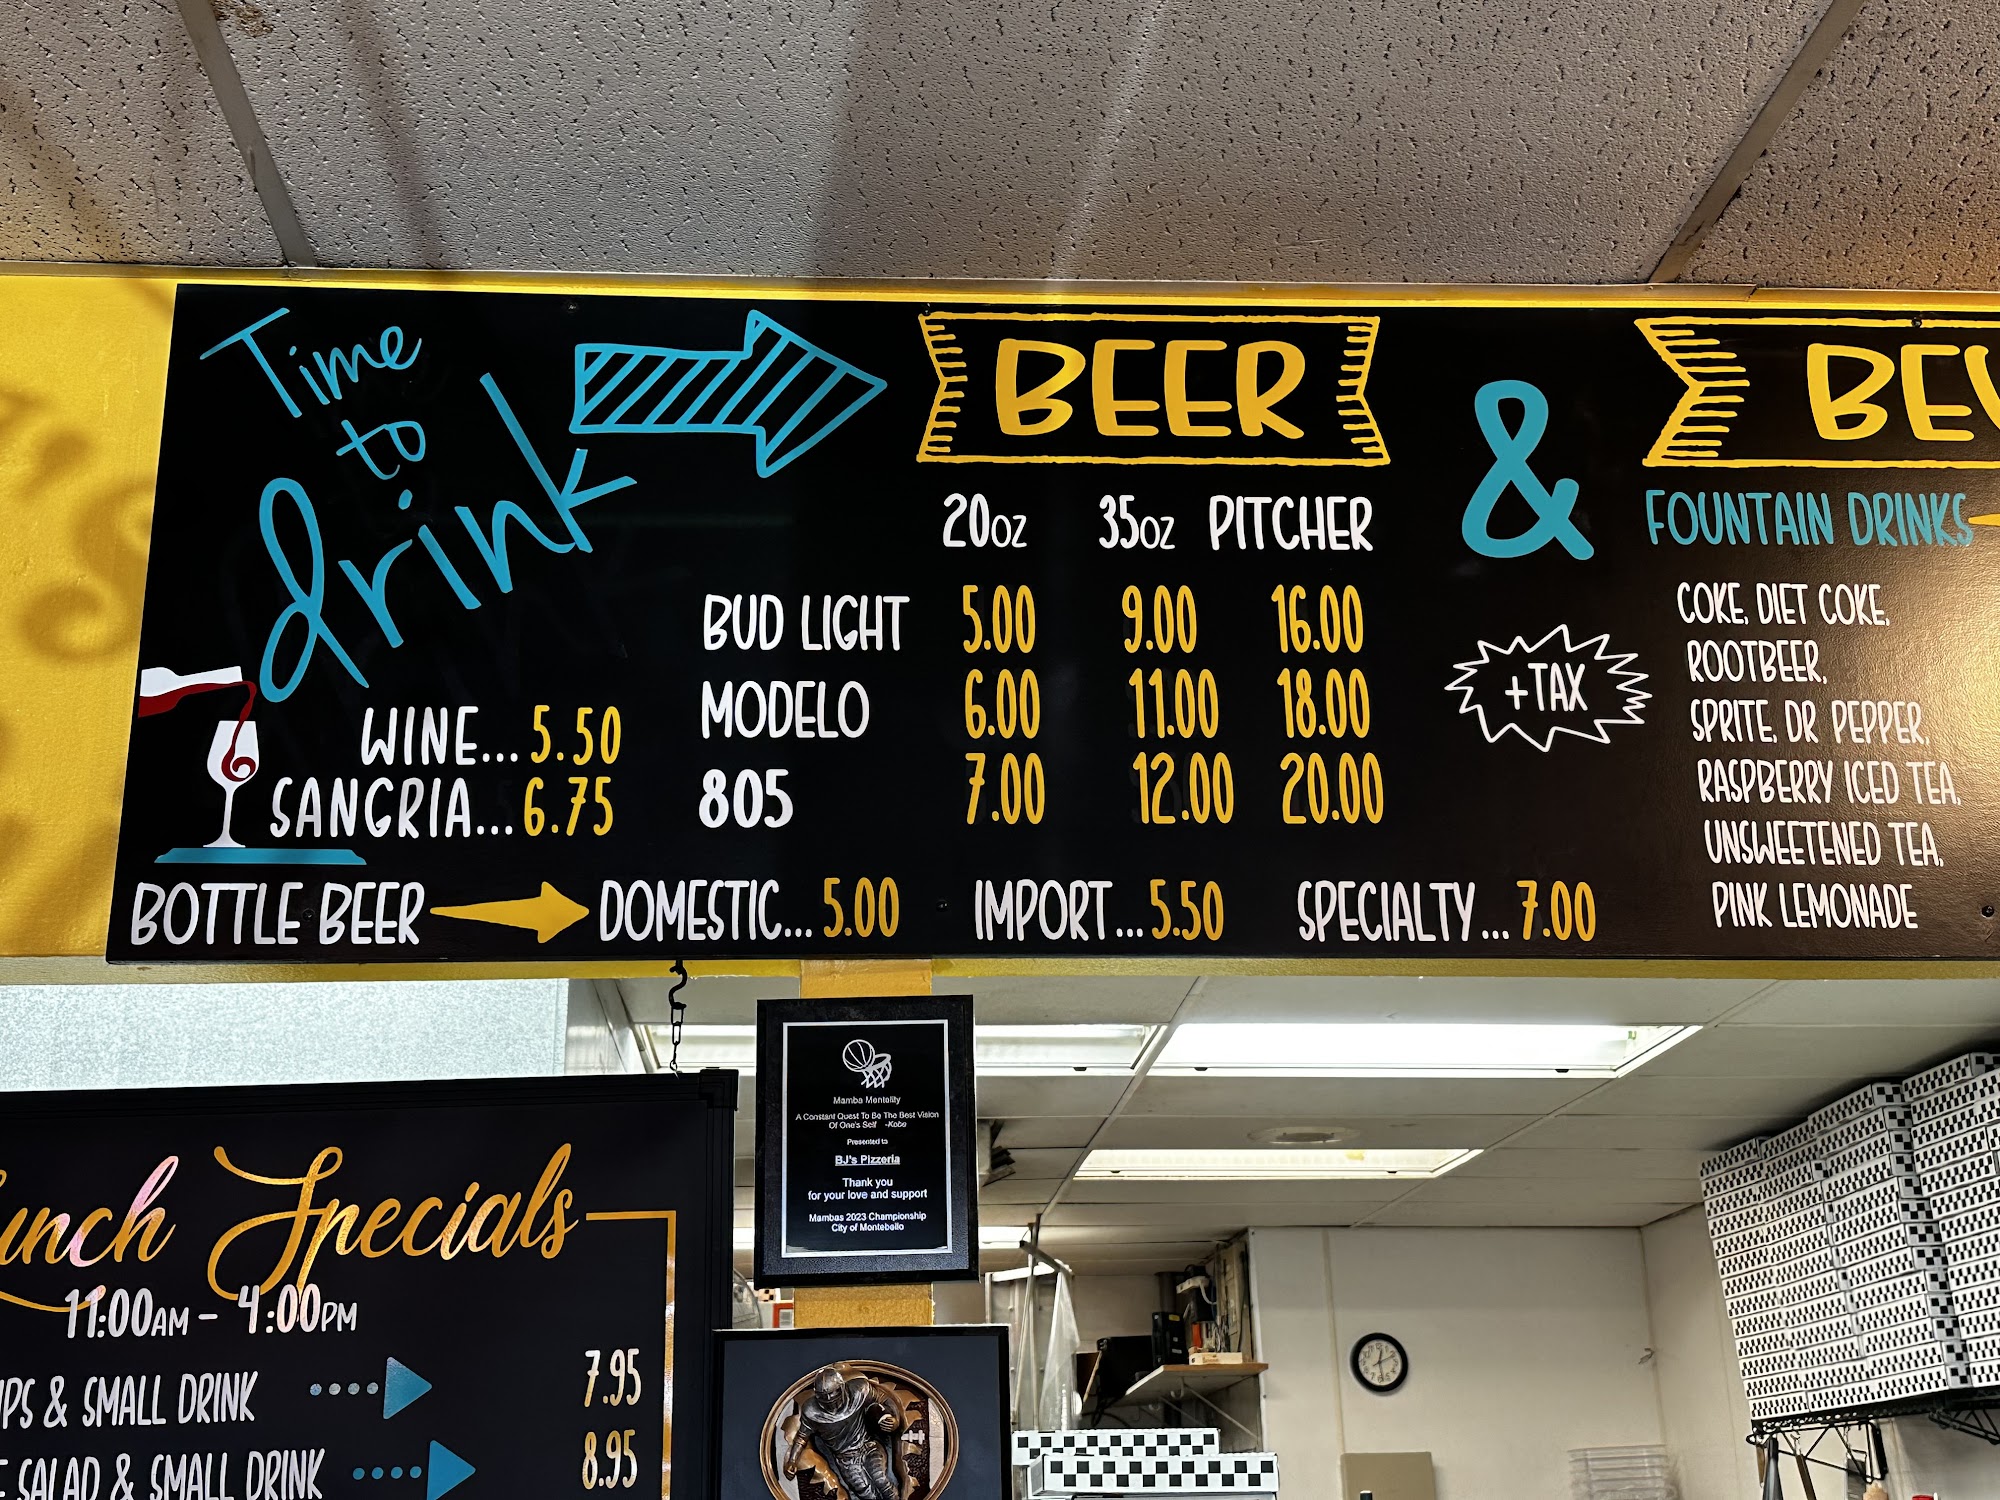 Time
to
drink
BEER
&
20oz 35oz PITCHER
BUD LIGHT 5.00 9.00 16.00
MODELO 6.00 11.00 18.00
805 7.00 12.00 20.00
+TAX
WINE...5.50
SANGRIA...6.75
BOTTLE BEER DOMESTIC...5.00 IMPORT...5.50 SPECIALTY...7.00
FOUNTAIN DRINKS
COKE, DIET COKE,
ROOTBEER,
SPRITE, DR PEPPER,
RASPBERRY ICED TEA,
UNSWEETENED TEA,
PINK LEMONADE
Mamba Mentality
A Constant Quest To Be The Best Vision
Of One's Self -Kobe
Presented to
BJ's Pizzeria
Thank you
for your love and support
Mambas 2023 Championship
City of Montebello
Specials
11:00AM - 4:00PM
& SMALL DRINK 7.95
SALAD & SMALL DRINK 8.95